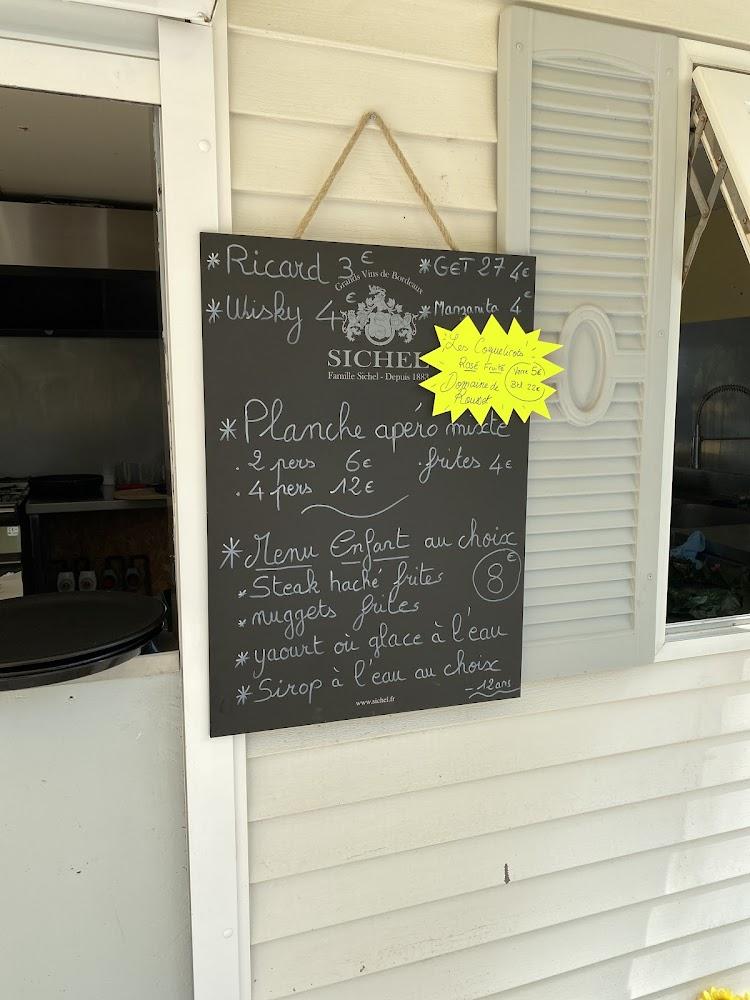 * Ricard 3€
* GET 27 4€
* Wisky 4€
* Manzanita 4€
Grands Vins de Bordeaux
SICHEL
Famille Sichel - Depuis 1883
Les Coquelicots
Rosé Fruité
Domaine de
Verre 5€
Btl 22€
* Planche apéro mixte
. 2 pers 6€
. frites 4€
. 4 pers 12€
* Menu Enfant au choix
8€
. Steak haché frites
. nuggets frites
* yaourt où glace à l'eau
* Sirop à l'eau au choix
- 12 ans
www.sichel.fr